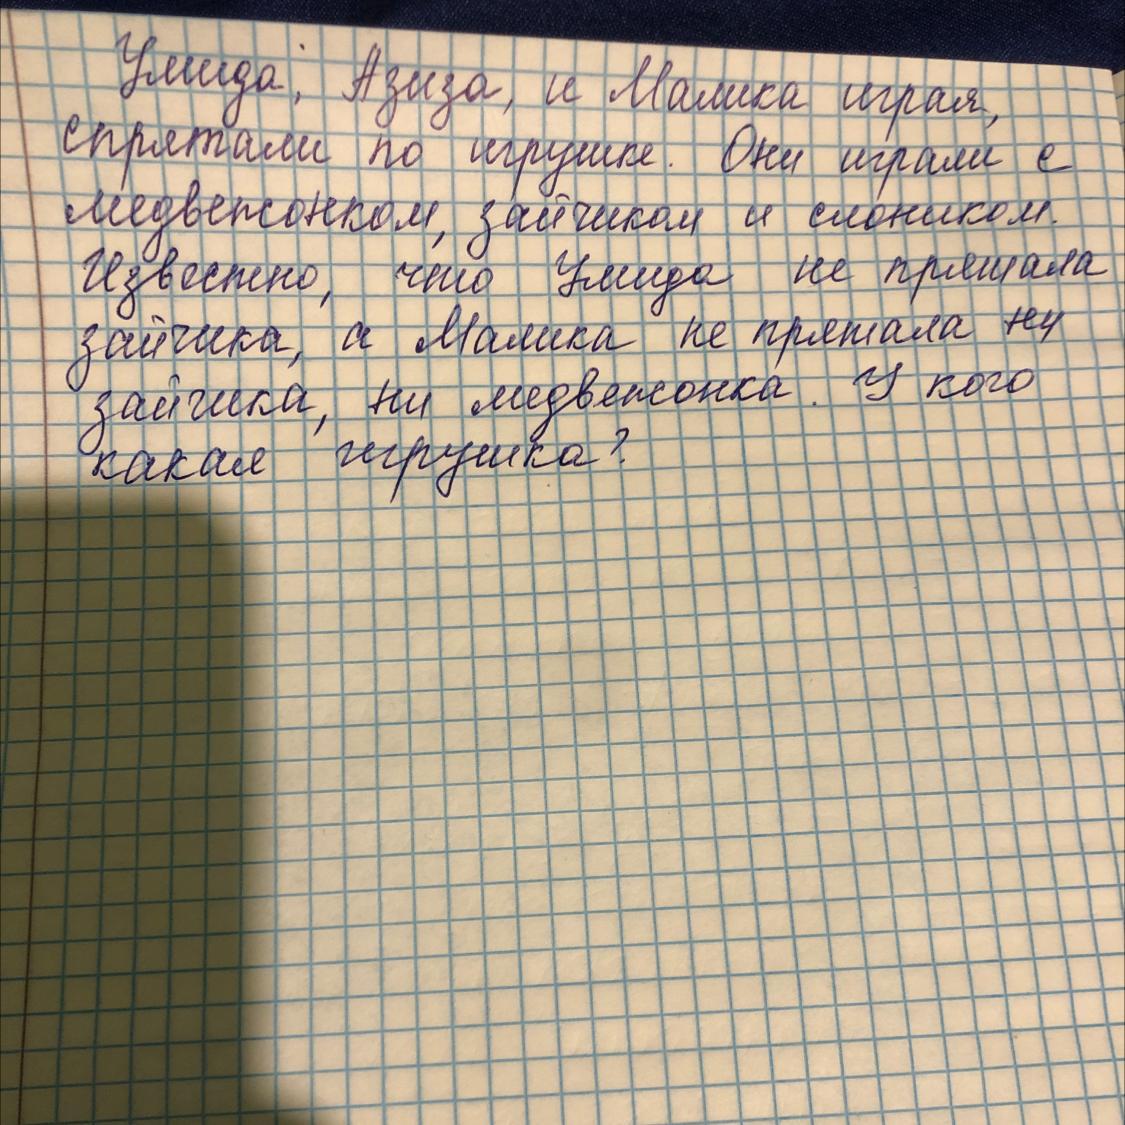 Умида, Азиза, и Малика играя,
спрятали по игрушке. Они играли с
медвежонком, зайчиком и слоником.
Известно, что Умида не прятала
зайчика, а Малика не прятала ни
зайчика, ни медвежонка. У кого
какая игрушка?